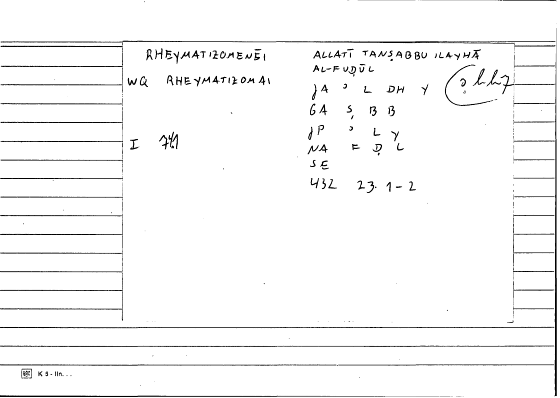 RHEYMATIZOMENĒI
WQ RHEYMATIZOMAI
I
ALLATĪ TANṢABBU ILAYHĀ
AL-FUḌŪL
JA ʾ L DH Y
GA Ṣ B B
JP ʾ L Y
NA F Ḍ L
SE
432 23. 1-2
K 5 - lin...